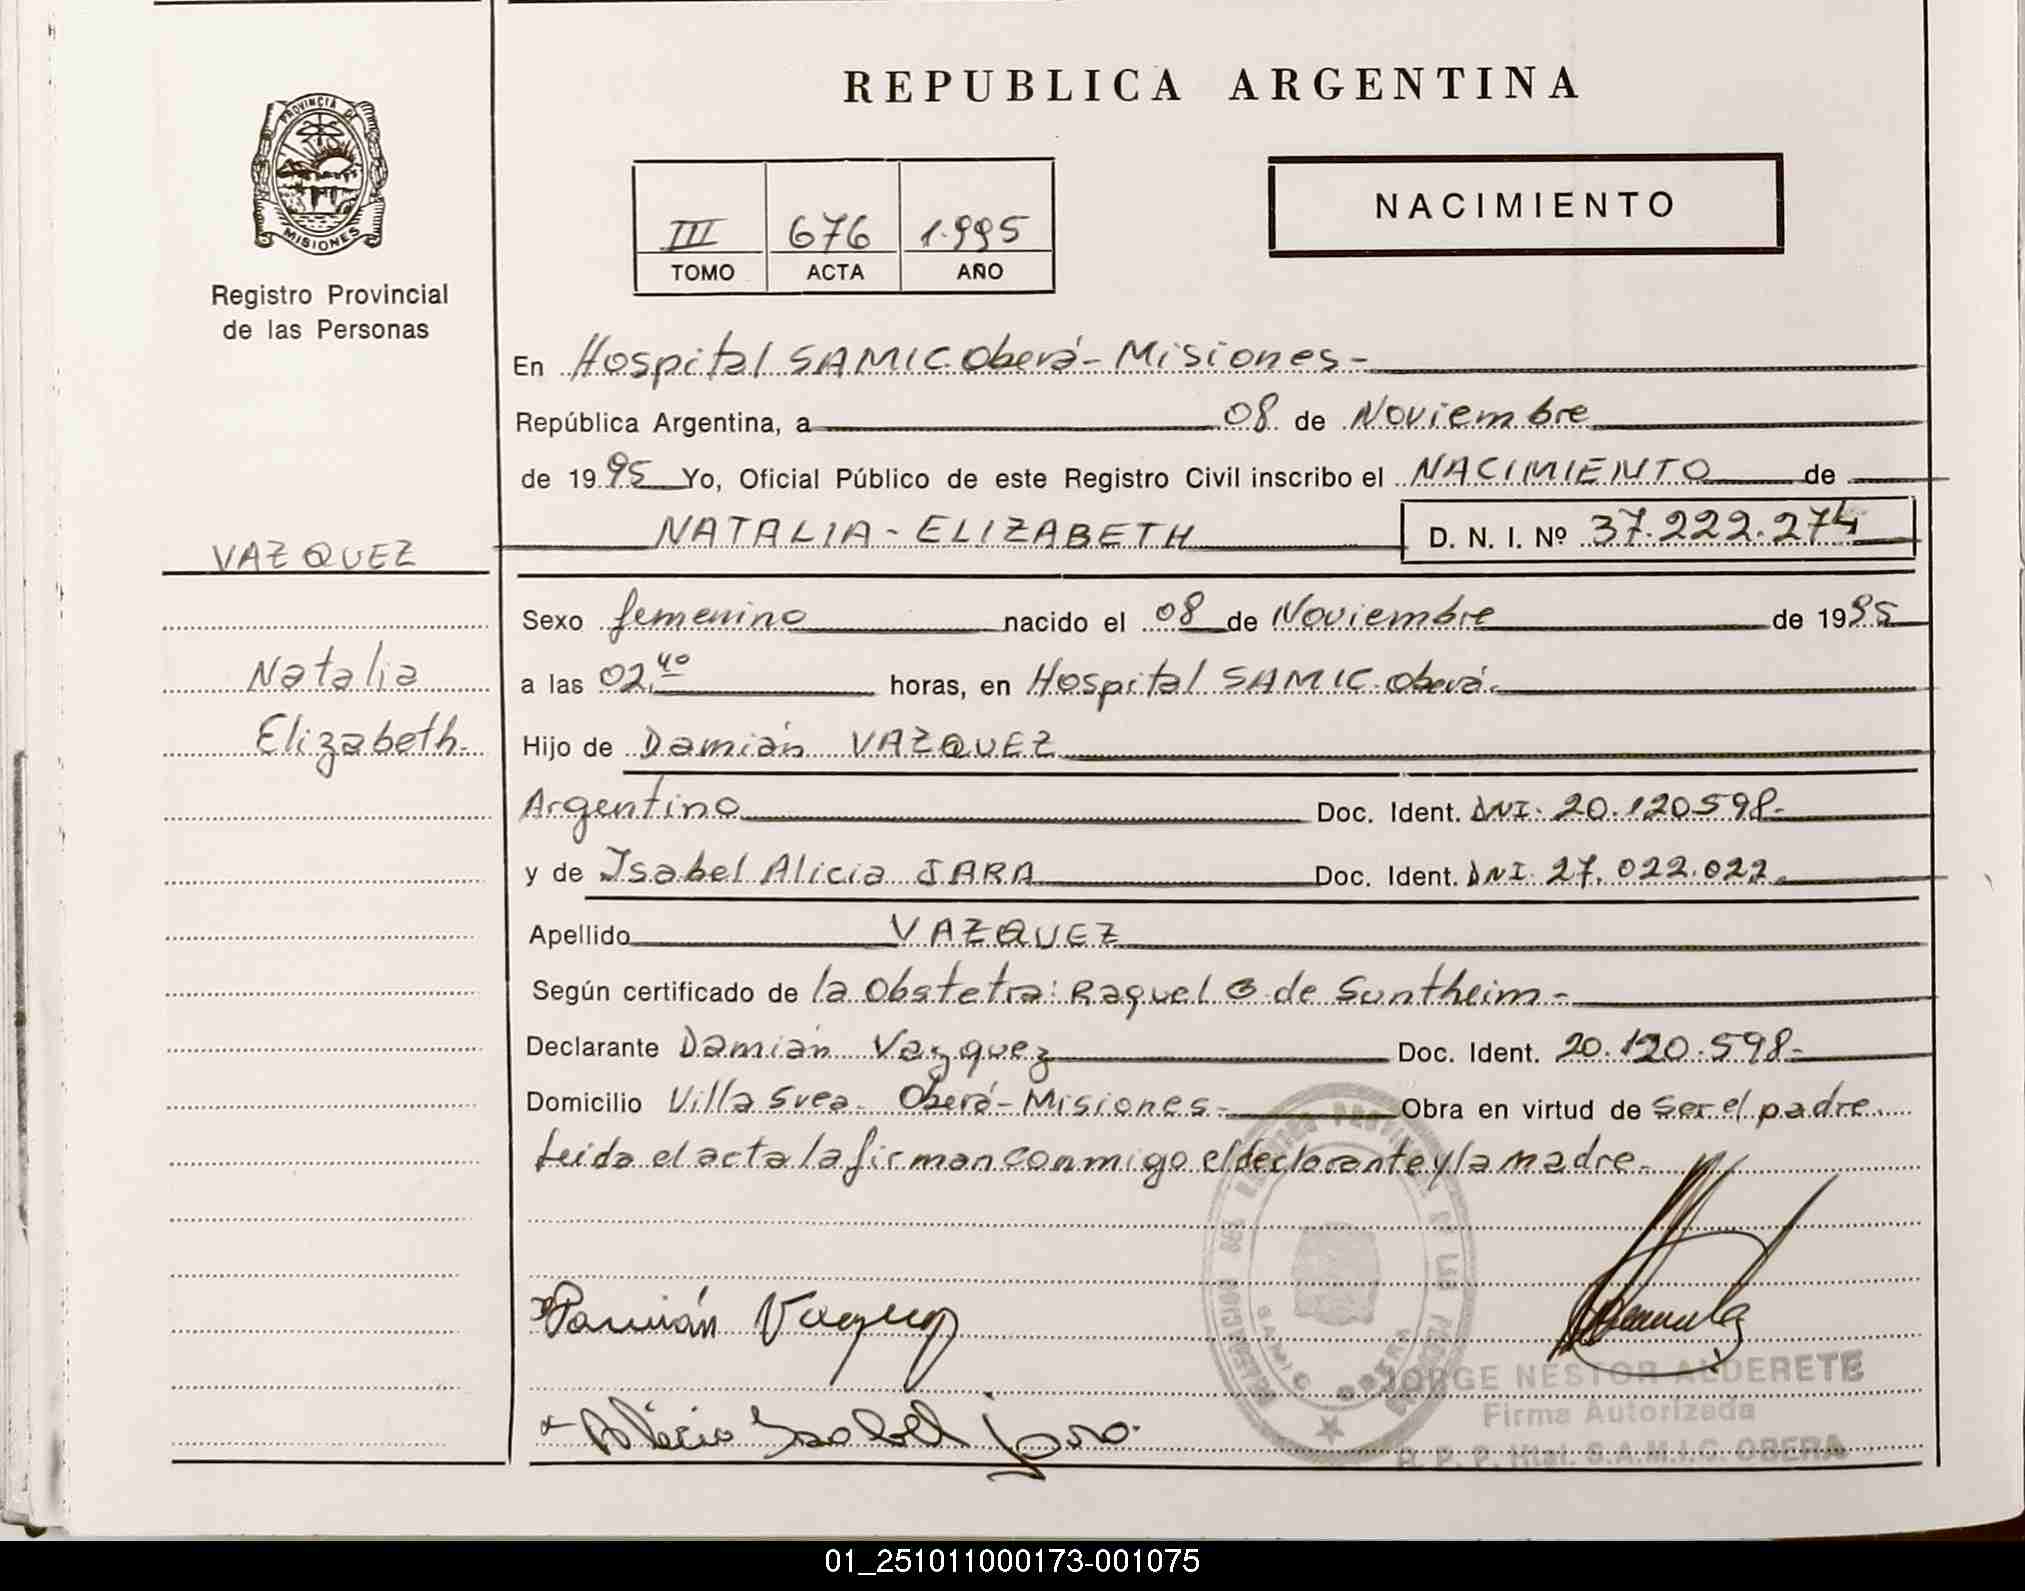 REPUBLICA ARGENTINA
PROVINCIA DE
MISIONES
Registro Provincial
de las Personas
III 676 1.995
TOMO ACTA AÑO
NACIMIENTO
En Hospital SAMIC Oberá - Misiones -
República Argentina, a 08 de Noviembre
de 19 95 Yo, Oficial Público de este Registro Civil inscribo el NACIMIENTO de
VAZQUEZ
NATALIA - ELIZABETH D. N. I. Nº 37.222.274
Sexo femenino nacido el 08 de Noviembre de 1995
Natalia
Elizabeth.
a las 02,40 horas, en Hospital SAMIC. Oberá.
Hijo de Damián VAZQUEZ
Argentino Doc. Ident. DNI. 20.120598.
y de Isabel Alicia JARA Doc. Ident. DNI. 27.022.022.
Apellido VAZQUEZ
Según certificado de la Obstetra: Raquel G. de Suntheim -
Declarante Damián Vazquez Doc. Ident. 20.120.598-
Domicilio Villa Svea. Oberá - Misiones - Obra en virtud de Ser el padre
Leida el acta la firman conmigo el declarante y la madre.
Damián Vazquez
Alicia Isabel Jara.
JORGE NESTOR ALDERETE
Firma Autorizada
R. P. P. Htal. S.A.M.I.C. OBERA
01_251011000173-001075